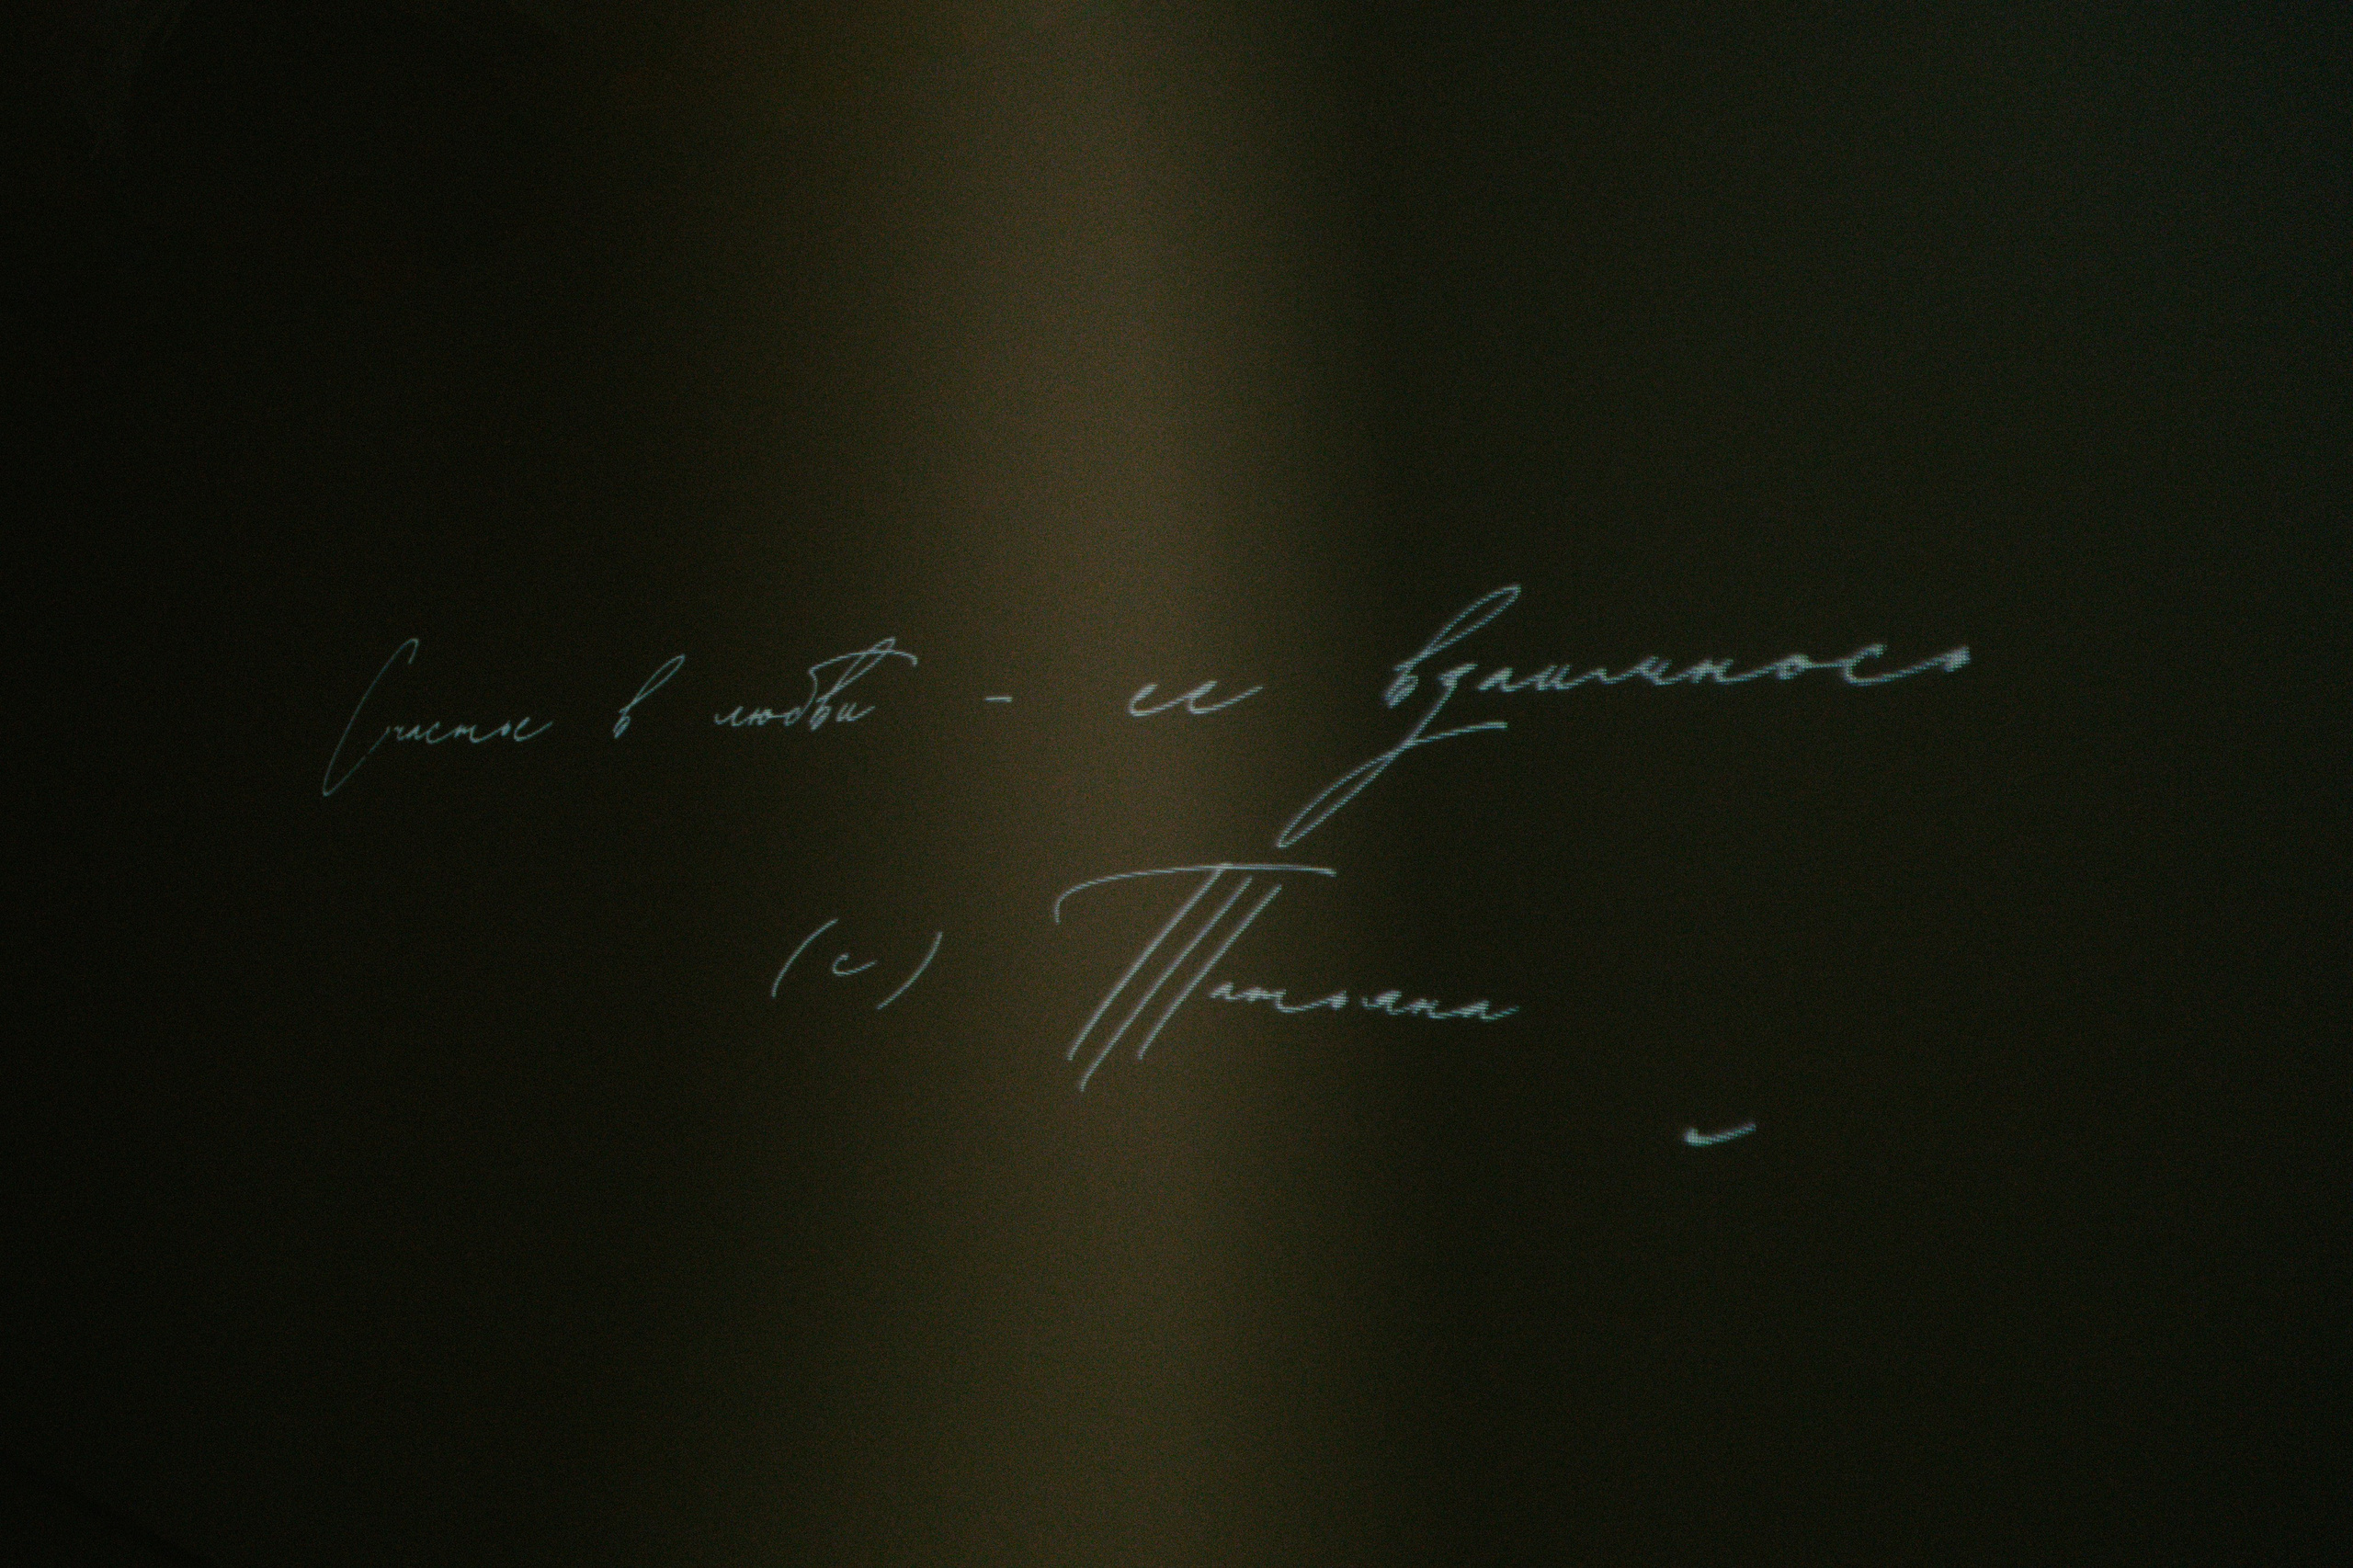 Счастье в любви - ее взаимнось
(с) Татьяна